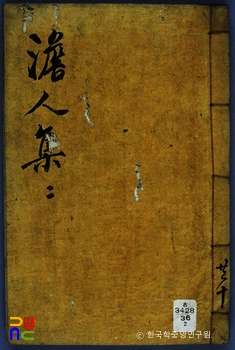 澹人集 二
共十
古
3428
36
2
© 한국학중앙연구원